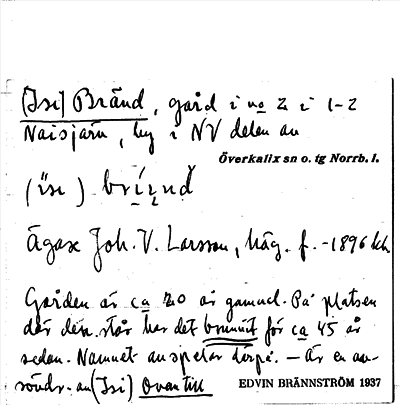 (Isi) Bränd, gård i no 2 i 1-2
Naisjärv, by i NV delen av
Överkalix sn o. tg Norrb. l.
(ïsi)
Ägare Joh. V. Larsson, häg. f. -1896 här
Gården är ca 20 år gammal. På platsen
där den står har det brunnit för ca 45 år
sedan. Namnet anspelar därpå. – Är en av-
söndr. av (Isi) Ovantill
EDVIN BRÄNNSTRÖM 1937